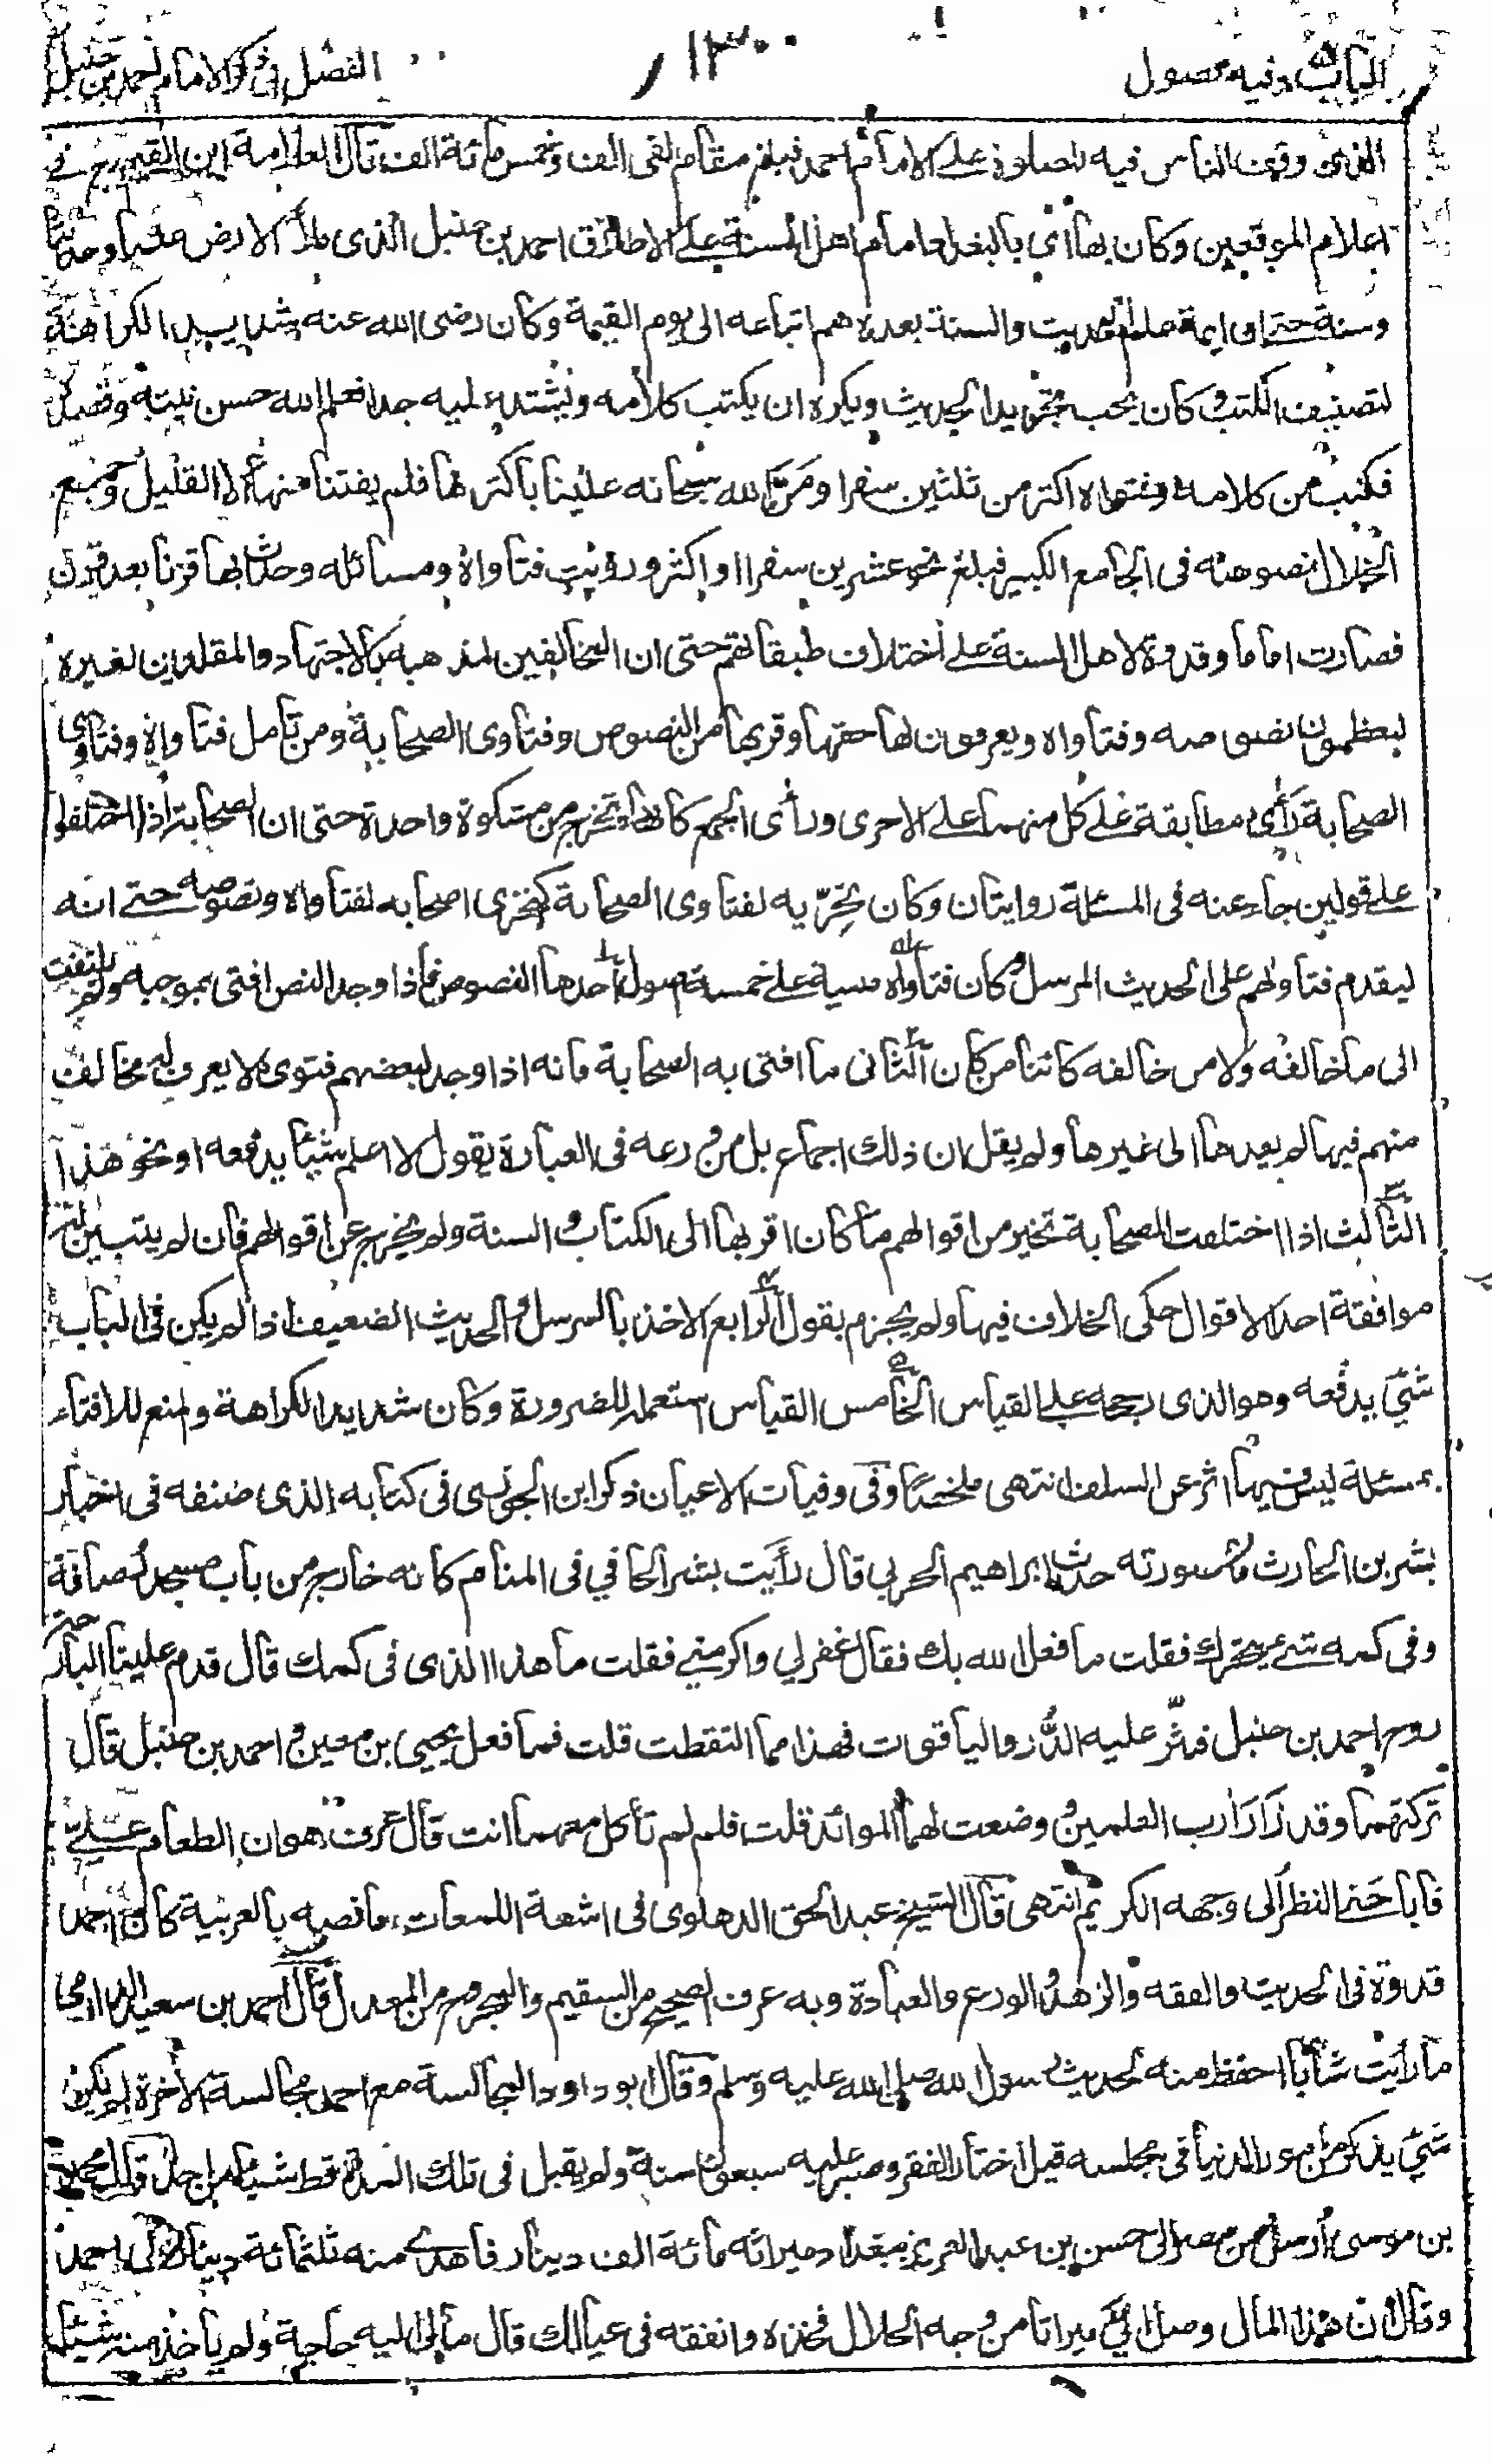 الباب وفيه فصول ١٣٠ الفصل في ذكر الامام احمد بن حنبل
الذي وقف الناس فيه للصلوة علے الامام احمد فبلغ مقام الفى الف وخمس مائة الف قال العلامة ابن القيم رح فے
اعلام الموقعين وكان بها اى بالبغداد امام اهل السنة علے الاطلاق احمد بن حنبل الذى ملأ الارض علما وحديثا
وسنة حتے ان ايمة الحديث والسنة بعده هم اتباعه الى يوم القيمة وكان رضى الله عنه شديد الكراهة
لتصنيف الكتب وكان يحب تجريد الحديث ويكره ان يكتب كلامه ويشتد عليه جدا فعلم الله حسن نيته وقصده
فكتب من كلامه وفتواه اكثر من ثلثين سفرا ومَنَّ الله سبحانه علينا باكثرها فلم يفتنا منها الا القليل وجمع
الخلال نصوصه فى الجامع الكبير فبلغ نحو عشرين سفرا او اكثر ورؤيت فتاواه ومسائله وحدث بها قرنا بعد قرن
فصارت اماما وقدوة لاهل السنة علے اختلاف طبقاتهم حتى ان المخالفين لمذهبه بالاجتهاد والمقلدين لغيره
ليعظمون نصوصه وفتاواه ويعرفون لها حقها وقربها من النصوص وفتاوى الصحابة ومن تأمل فتاواه وفتاوى
الصحابة رأى مطابقة علے كل منهما علے الاخرى ورأى الجميع كانها تخرج من مشكوة واحدة حتى ان الصحابة اذا اختلفوا
علے قولين جاء عنه فى المسئلة روايتان وكان تحرّيه لفتاوى الصحابة كتحرى اصحابه لفتاواه ونصوصه حتے انه
ليقدم فتاواهم على الحديث المرسل وكان فتاواه مبنية علے خمسة اصول احدها النصوص فاذا وجد النص افتى بموجبه ولم يلتفت
الى ما خالفه ولا من خالفه كائنا من كان الثانى ما افتى به الصحابة فانه اذا وجد لبعضهم فتوى لا يعرف له مخالف
منهم فيها لم يعدها الى غيرها ولم يقل ان ذلك اجماع بل من ورعه فى العبارة يقول لا اعلم شيئا يدفعه او نحو هذا
الثالث اذا اختلفت الصحابة تخير من اقوالهم ما كان اقربها الى الكتاب والسنة ولم يخرج عن اقوالهم فان لم يتبين له
موافقة احد الاقوال حكى الخلاف فيها ولم يجزم بقول الرابع الاخذ بالمرسل والحديث الضعيف اذا لم يكن فى الباب
شئ يدفعه وهو الذى رجحه علے القياس الخامس القياس استعمله للضرورة وكان شديد الكراهة والمنع للافتاء
بمسئلة ليس فيها اثر عن السلف انتهى ملخصا وفى وفيات الاعيان ذكر ابن الجوزى فى كتابه الذى صنفه فى اخبار
بشر بن الحارث ما صورته حدث ابراهيم الحربي قال رأيت بشر الحافي فى المنام كانه خارج من باب مسجد الرصافة
وفى كمه شئ يتحرك فقلت ما فعل الله بك فقال غفر لي واكرمنے فقلت ما هذا الذى فى كمك قال قدم علينا البارحة
روح احمد بن حنبل فنثر عليه الدُّر واليا قوت فهذا مما التقطت قلت فما فعل يحيى بن معين واحمد بن حنبل قال
تركتهما وقد زارا رب العلمين وضعت لهما الموائد قلت فلم لم تأكل معهما انت قال عرف هوان الطعام علےّ
فاباحنے النظر الى وجهه الكريم انتهى قال الشيخ عبد الحق الدهلوى فى اشعة اللمعات ما نصه بالعربية كان احمد
قدوة فى الحديث والفقه والزهد والورع والعبادة وبه عرف الصحيح من السقيم والمجروح من المعدل قال احمد بن سعيد الدارمى
ما رأيت شابا احفظ منه لحديث رسول الله صلى الله عليه وسلم وقال ابو داود المجالسة مع احمد مجالسة الاخرة لم يكن
شئ يذكر من امور الدنيا فى مجلسه قيل اختار الفقر وصبر عليه سبعون سنة ولم يقبل فى تلك المدة قط شيئا من احد قال محمد
بن موسى ارسل من مصر الى حسن بن عبد العزيز ببغداد ميراثه مائة الف دينار فاهدے منه ثلثمائة دينار الى احمد
وقال ان هذا المال وصل الىّ ميراثا من وجه الحلال فخذه وانفقه فى عيالك قال مالى اليه حاجة ولم يأخذ منه شيئا